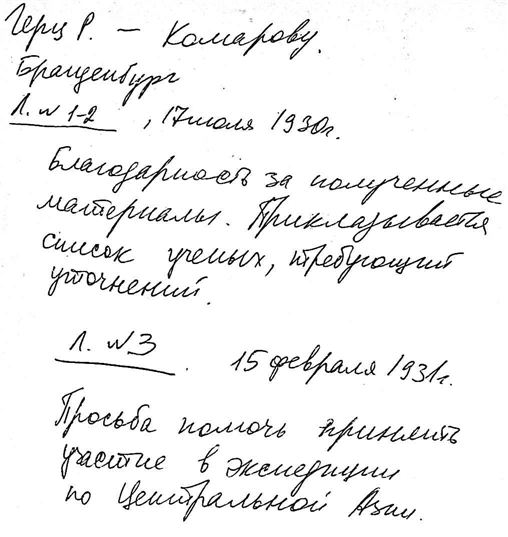 Герц Р. — Комарову.
Бранденбург
Л. № 1-2, 17 июля 1930г.
Благодарность за полученные
материалы. Прикладывается
список ученых, требующий
уточнений.
Л. № 3. 15 февраля 1931г.
Просьба помочь принять
участие в экспедиции
по Центральной Азии.